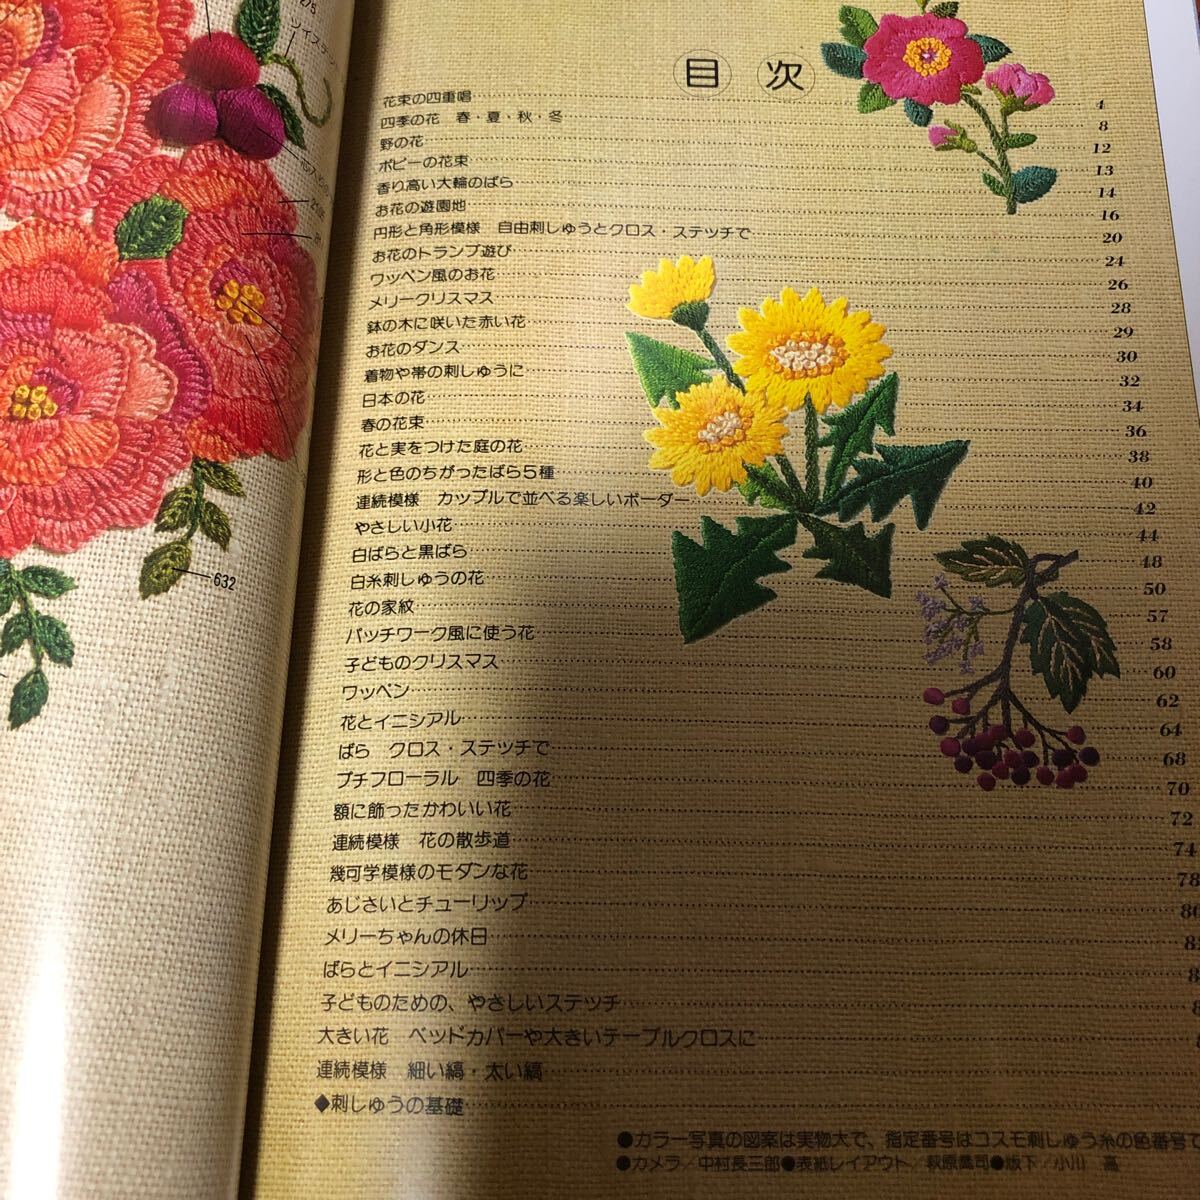 275
632
目次
花束の四重唱 4
四季の花 春・夏・秋・冬 8
野の花 12
ポピーの花束 13
香り高い大輪のばら 14
お花の遊園地 16
円形と角形模様 自由刺しゅうとクロス・ステッチで 20
お花のトランプ遊び 24
ワッペン風のお花 26
メリークリスマス 28
鉢の木に咲いた赤い花 29
お花のダンス 30
着物や帯の刺しゅうに 32
日本の花 34
春の花束 36
花と実をつけた庭の花 38
形と色のちがったばら5種 40
連続模様 カップルで並べる楽しいボーダー 42
やさしい小花 44
白ばらと黒ばら 48
白糸刺しゅうの花 50
花の家紋 57
パッチワーク風に使う花 58
子どものクリスマス 60
ワッペン 62
花とイニシアル 64
ばら クロス・ステッチで 68
プチフローラル 四季の花 70
額に飾ったかわいい花 72
連続模様 花の散歩道 74
幾可学模様のモダンな花 78
あじさいとチューリップ
メリーちゃんの休日
ばらとイニシアル
子どものための、やさしいステッチ
大きい花 ベッドカバーや大きいテーブルクロスに
連続模様 細い縞・太い縞
◆刺しゅうの基礎
●カラー写真の図案は実物大で、指定番号はコスモ刺しゅう糸の色番号で
●カメラ/中村長三郎●表紙レイアウト/萩原喬司●版下/小川 高